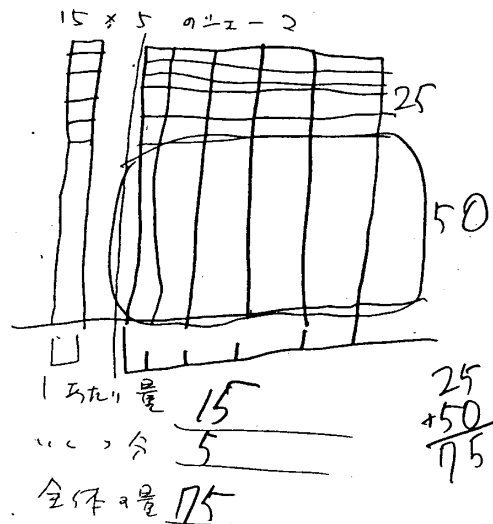 15×5 のシェーマ
25
50
1あたり量 15
いくつ分 5
全体の量 75
25
+50
75